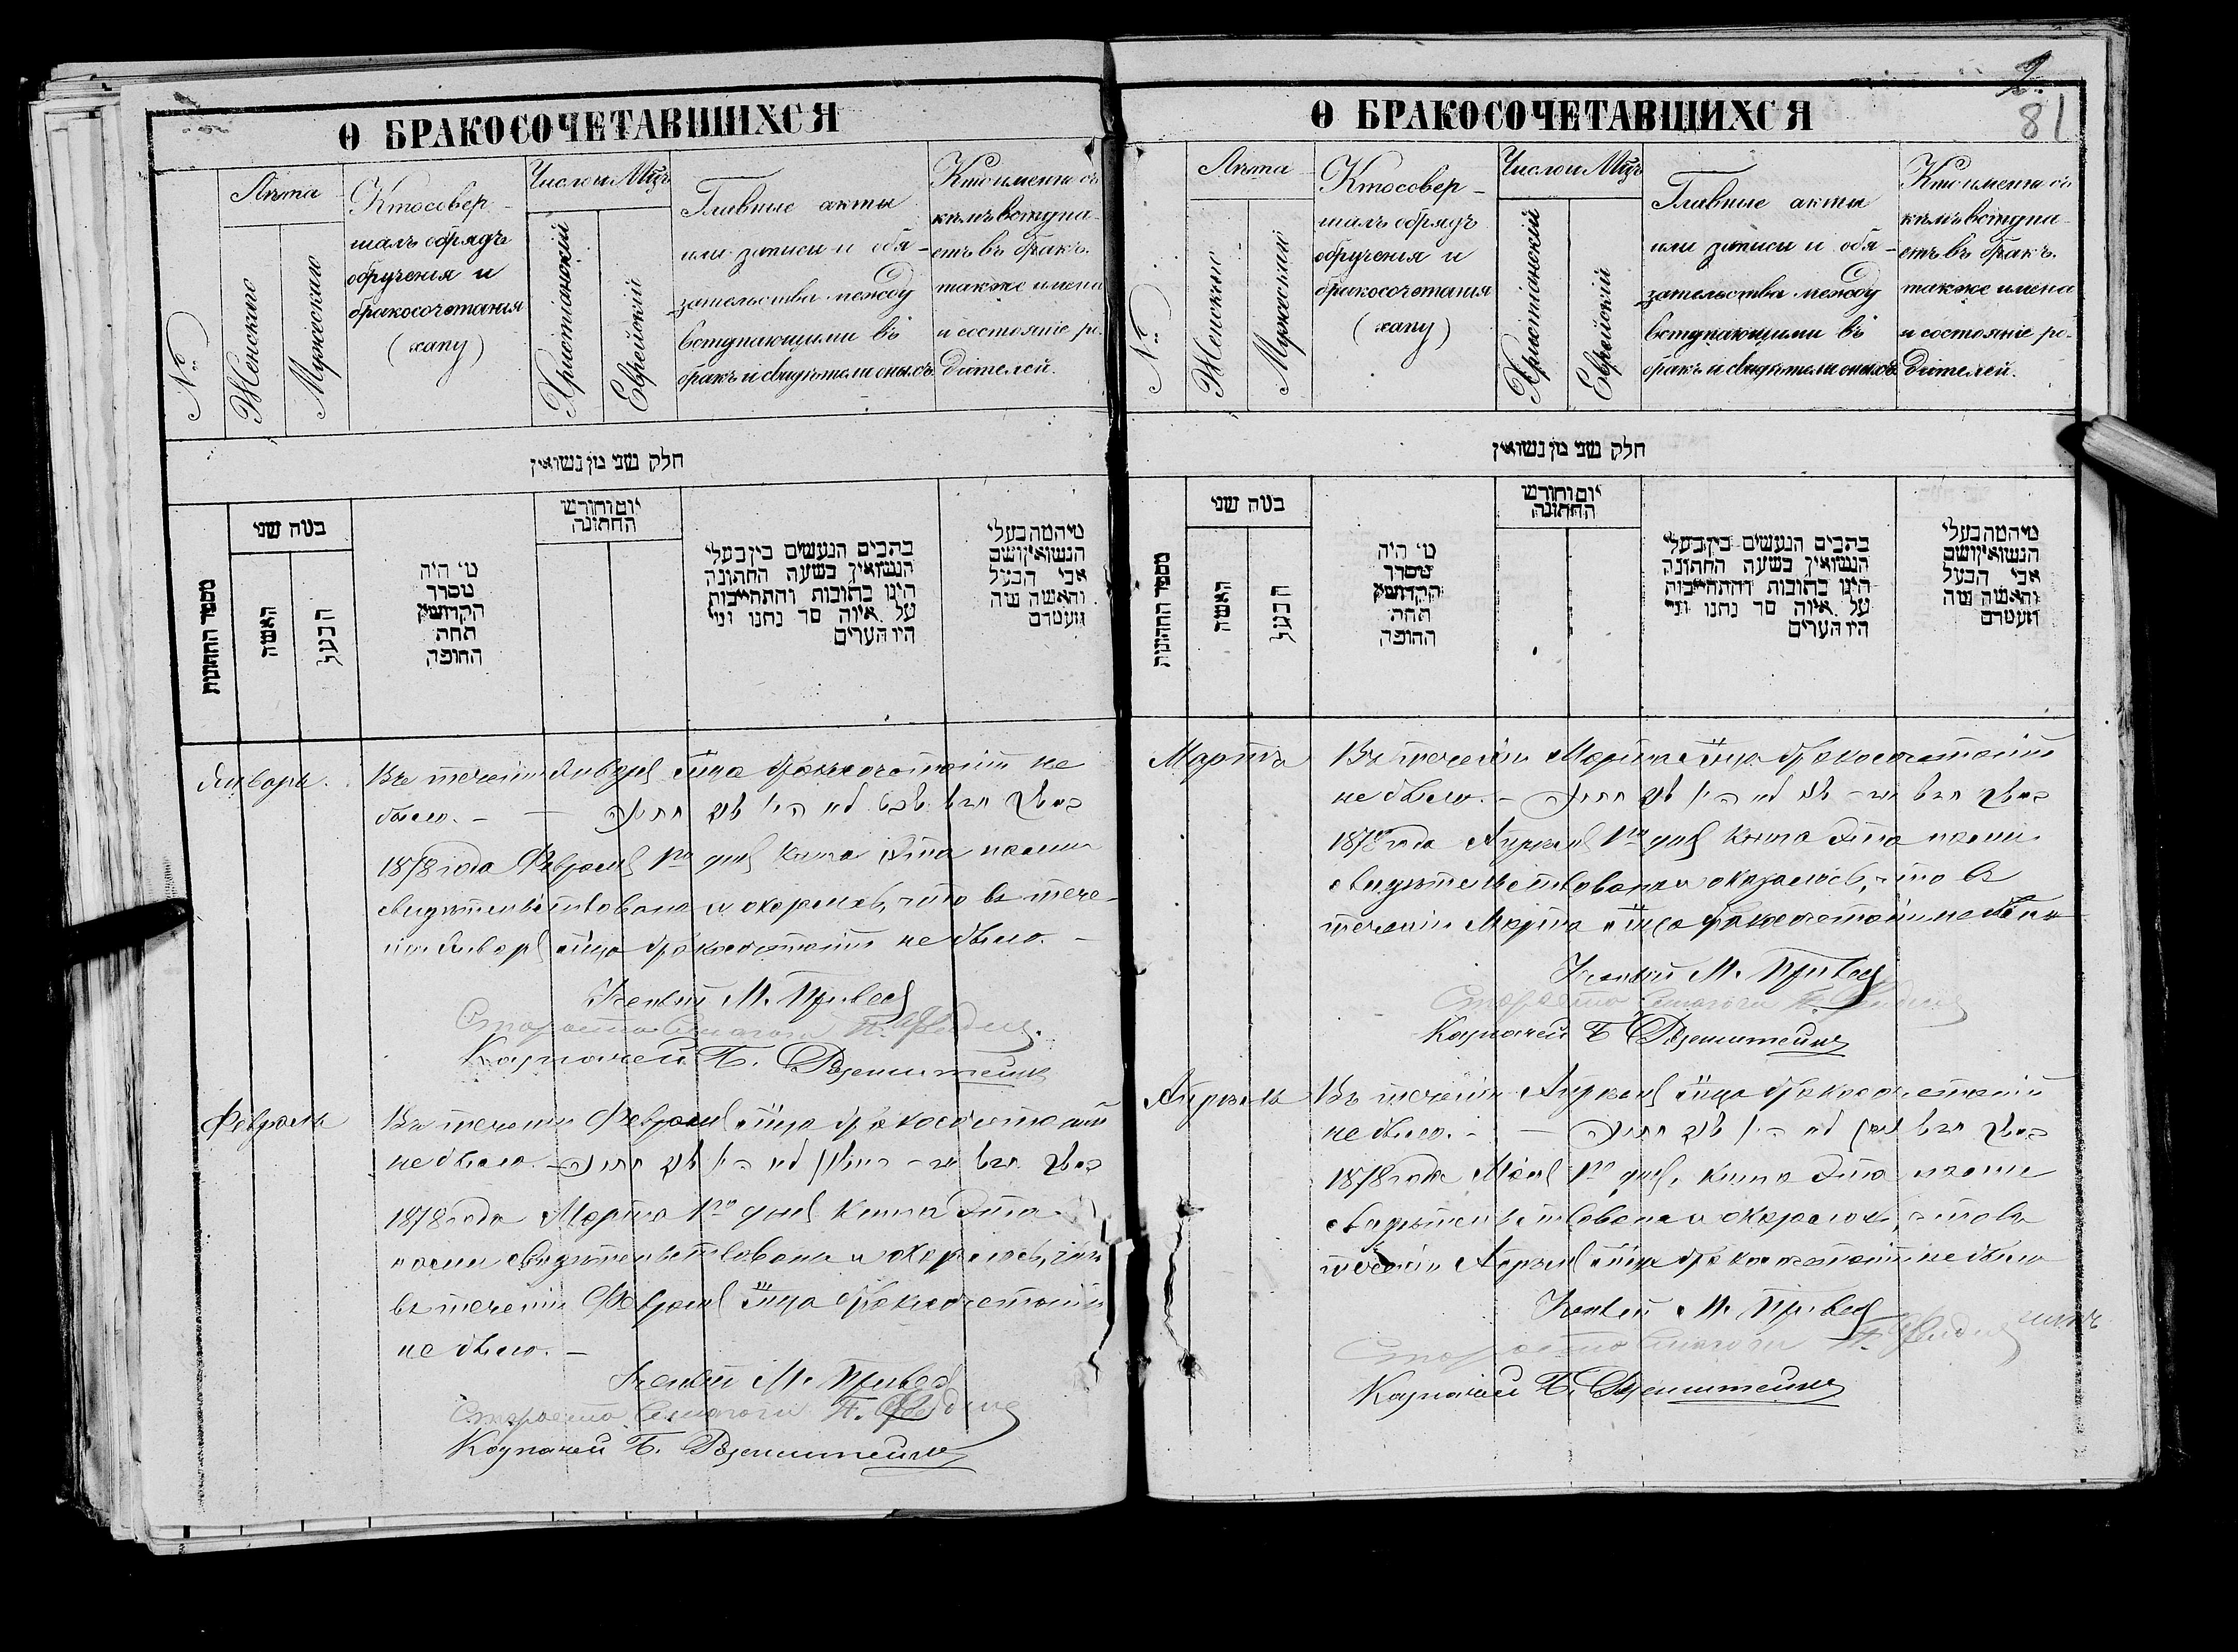 О БРАКОСОЧЕТАВШИХСЯ
№
Лѣта
Женскаго
Мужескаго
Кто совер-
шалъ обрядъ
обрученія и
бракосочетанія
(хапу)
Число и Мцъ
Христіанскій
Еврейскій
Главные акты
или записи и обя-
зательства между
вступающими въ
бракъ и свидѣтели оныхъ
Кто именно съ
кѣмъ вступа-
етъ въ бракъ.
также имена
и состояніе ро-
дителей.
חלק שני מן נשואין
מספר החתונות
כמה שני
האשה
הבעל
מי היה
מסדר
הקדושין
תחת
החופה
יום וחודש
החתונה
כתבים הנעשים בין בעלי
הנשואין בשעה החתונה
היינו כתובות והתחייבות
על איזה סך נתנו ומי
היו העדים
מי המה בעלי
הנשואין ושם
אבי הבעל
והאשה מה
מעמדם
Январь.
Въ теченіи Января мѣсяца бракосочетаній не
было. —
1878 года Февраля 1го дня книга эта нами
свидѣтельствована и оказалось, что въ тече-
ніи Января мѣсяца бракосочетаній не было. —
М. Привес
Староста Синагоги
Казначей Б. Розенштейнъ
Февраль
Въ теченіи Февраля мѣсяца бракосочетаній
не было. —
1878 года Марта 1го дня книга эта
нами свидѣтельствована и оказалось, что
въ теченіи Февраля мѣсяца бракосочетаній
не было. —
М. Привес
Староста Синагоги
Казначей Б. Розенштейнъ
2.
81
О БРАКОСОЧЕТАВШИХСЯ
№
Лѣта
Женскаго
Мужескаго
Кто совер-
шалъ обрядъ
обрученія и
бракосочетанія
(хапу)
Число и Мцъ
Христіанскій
Еврейскій
Главные акты
или записи и обя-
зательства между
вступающими въ
бракъ и свидѣтели оныхъ
Кто именно съ
кѣмъ вступа-
етъ въ бракъ.
также имена
и состояніе ро-
дителей.
חלק שני מן נשואין
מספר החתונות
כמה שני
האשה
הבעל
מי היה
מסדר
הקדושין
תחת
החופה
יום וחודש
החתונה
כתבים הנעשים בין בעלי
הנשואין בשעה החתונה
היינו כתובות והתחייבות
על איזה סך נתנו ומי
היו העדים
מי המה בעלי
הנשואין ושם
אבי הבעל
והאשה מה
מעמדם
Мартъ
Въ теченіи Марта мѣсяца бракосочетаній
не было. —
1878 года Апрѣля 1го дня книга эта нами
свидѣтельствована и оказалось, что въ
теченіи Марта мѣсяца бракосочетаній не было
М. Привес
Староста Синагоги
Казначей Б. Розенштейнъ
Апрѣль
Въ теченіи Апрѣля мѣсяца бракосочетаній
не было. —
1878 года Мая 1го дня, книга эта нами
свидѣтельствована и оказалось, что въ
теченіи Апрѣля мѣсяца бракосочетаній не было
М. Привес
Староста Синагоги
Казначей Б. Розенштейнъ